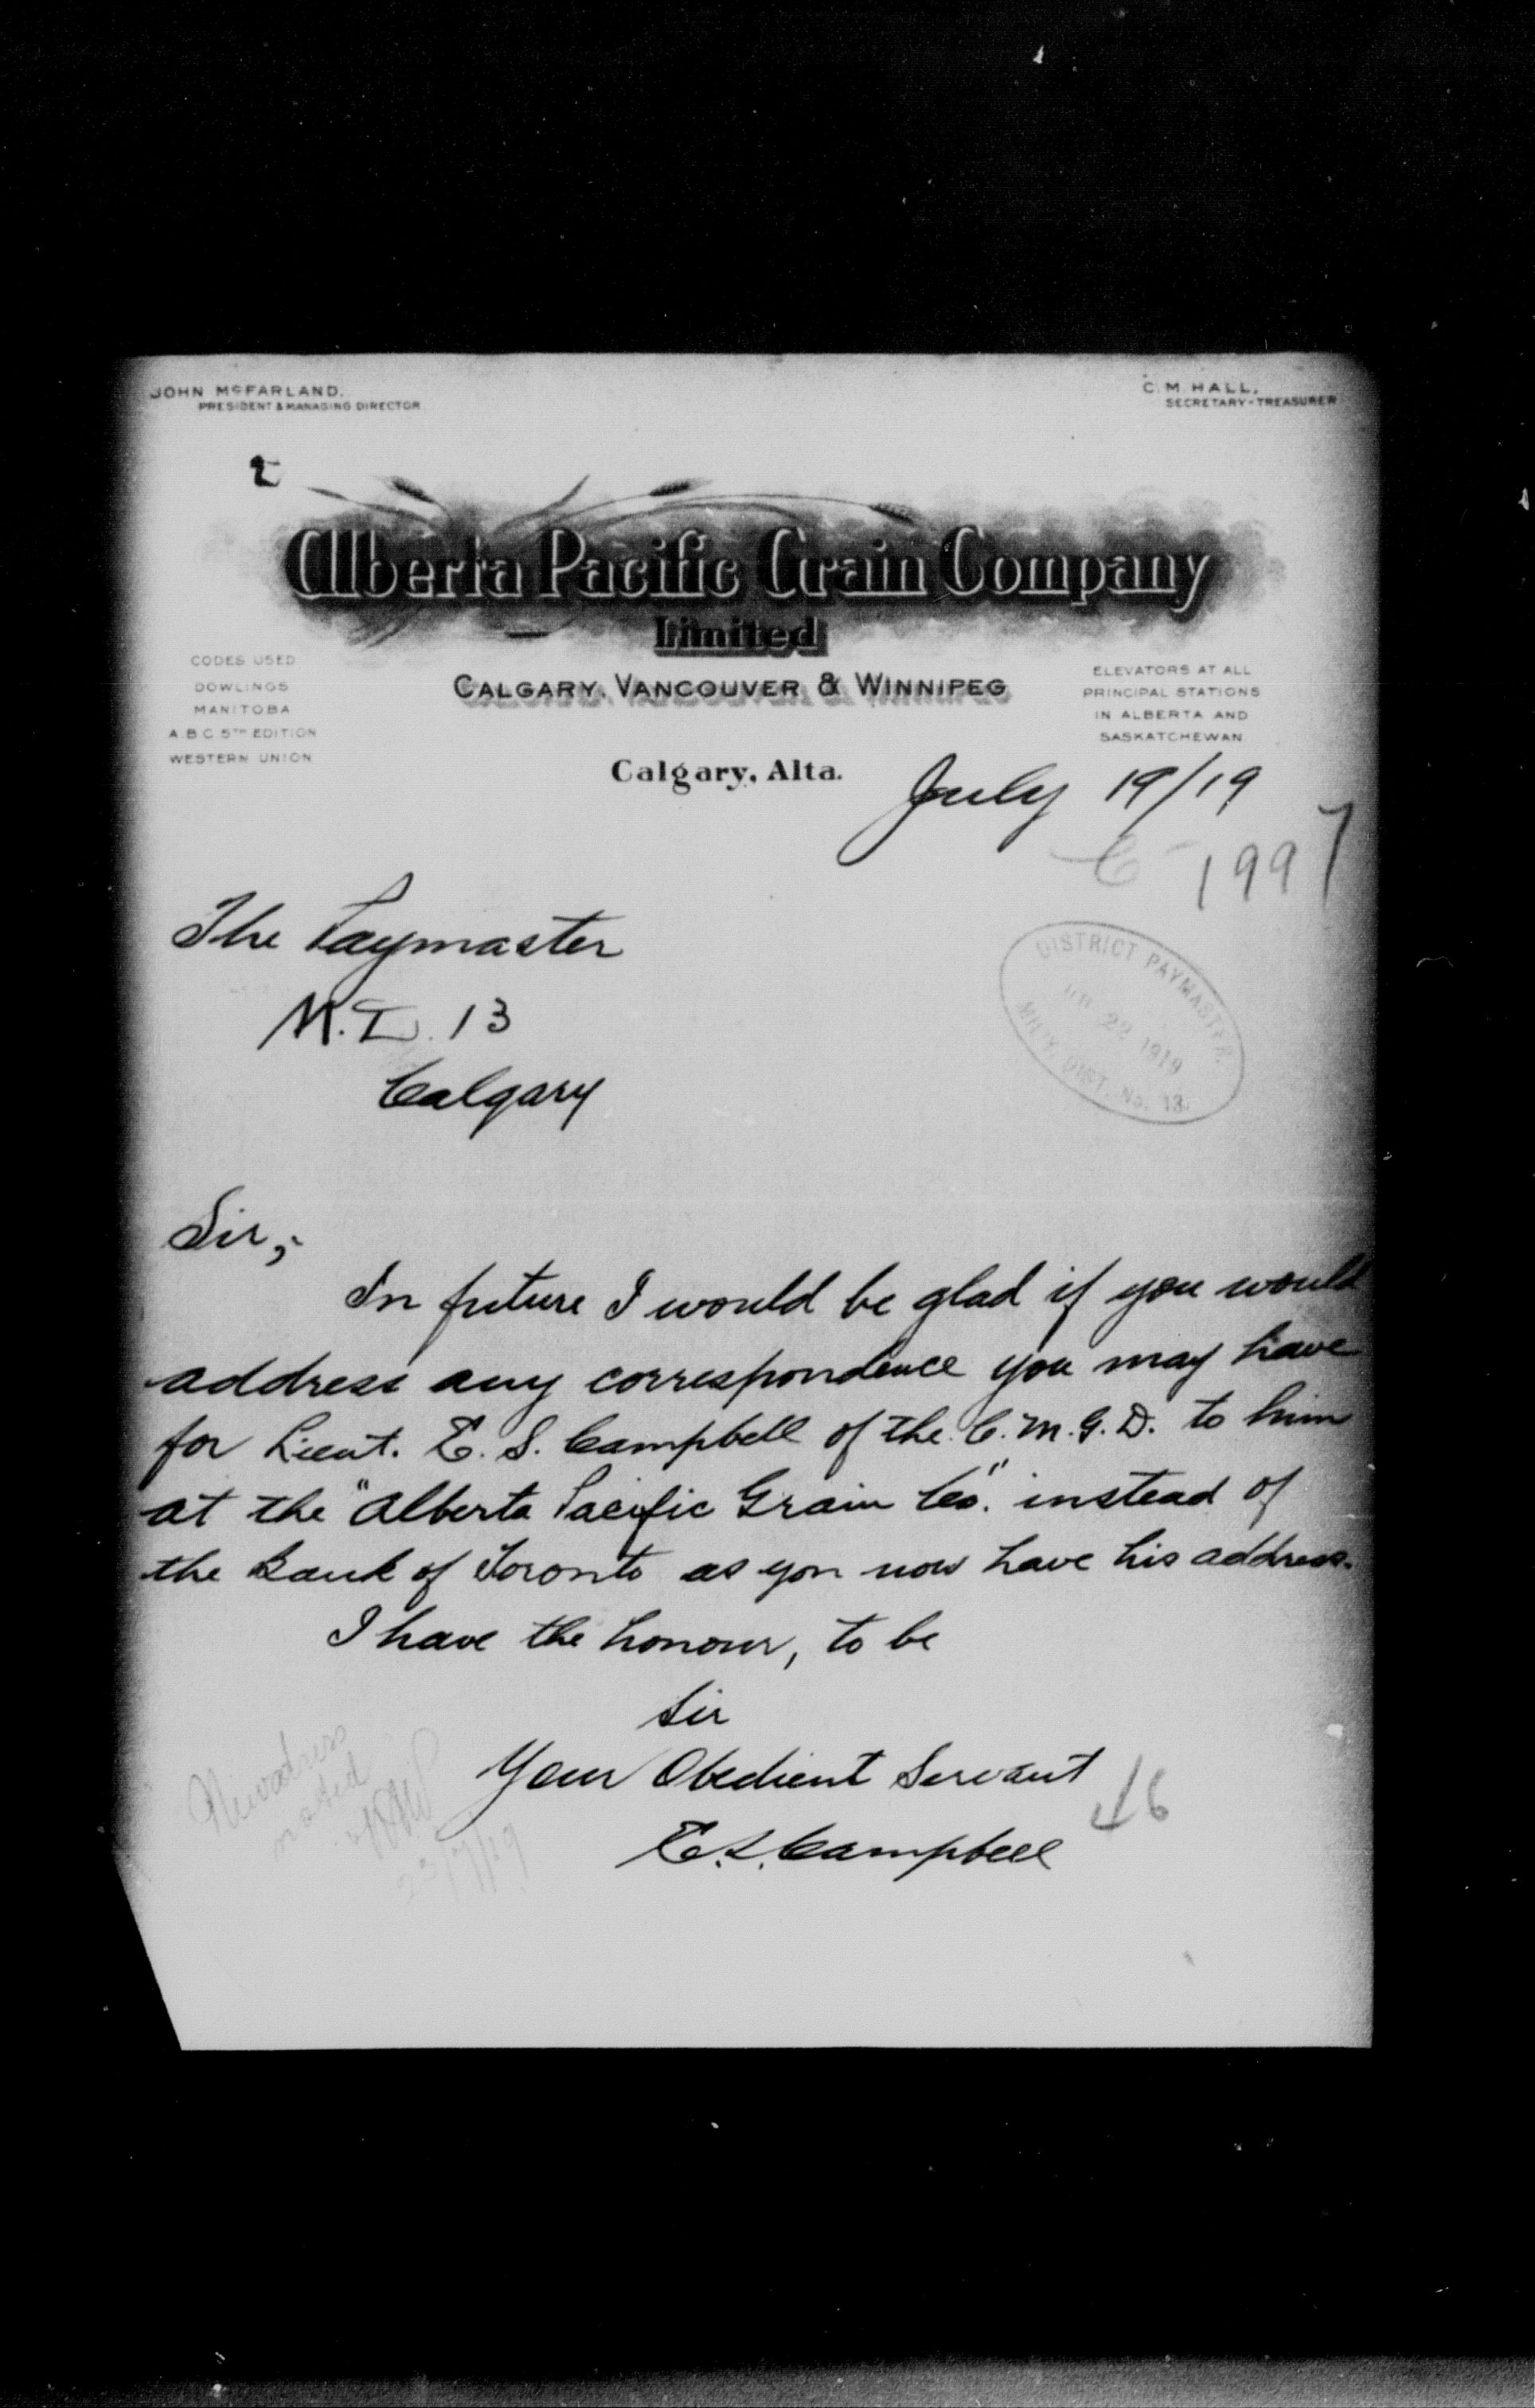 JOHN McFARLAND.
PRESIDENT & MANAGING DIRECTOR
C. M. HALL,
SECRETARY-TREASURER
2
Alberta Pacific Grain Company
Limited
CALGARY, VANCOUVER & WINNIPEG
CODES USED
DOWLINGS
MANITOBA
A.B.C. 5TH EDITION
WESTERN UNION
ELEVATORS AT ALL
PRINCIPAL STATIONS
IN ALBERTA AND
SASKATCHEWAN
Calgary, Alta.
July 19/19
C-1997
The Paymaster
M.D. 13
Calgary
DISTRICT PAYMASTER.
22 1919
MIL'Y. DIST. No. 13
Sir,-
In future I would be glad if you would
address any correspondence you may have
for Lieut. E. S. Campbell of the C.M.G.D. to him
at the "Alberta Pacific Grain Co." instead of
the Bank of Toronto as you now have his address.
I have the honour, to be
Sir
Your Obedient Servant
E.S. Campbell
New address
noted
23/7/19